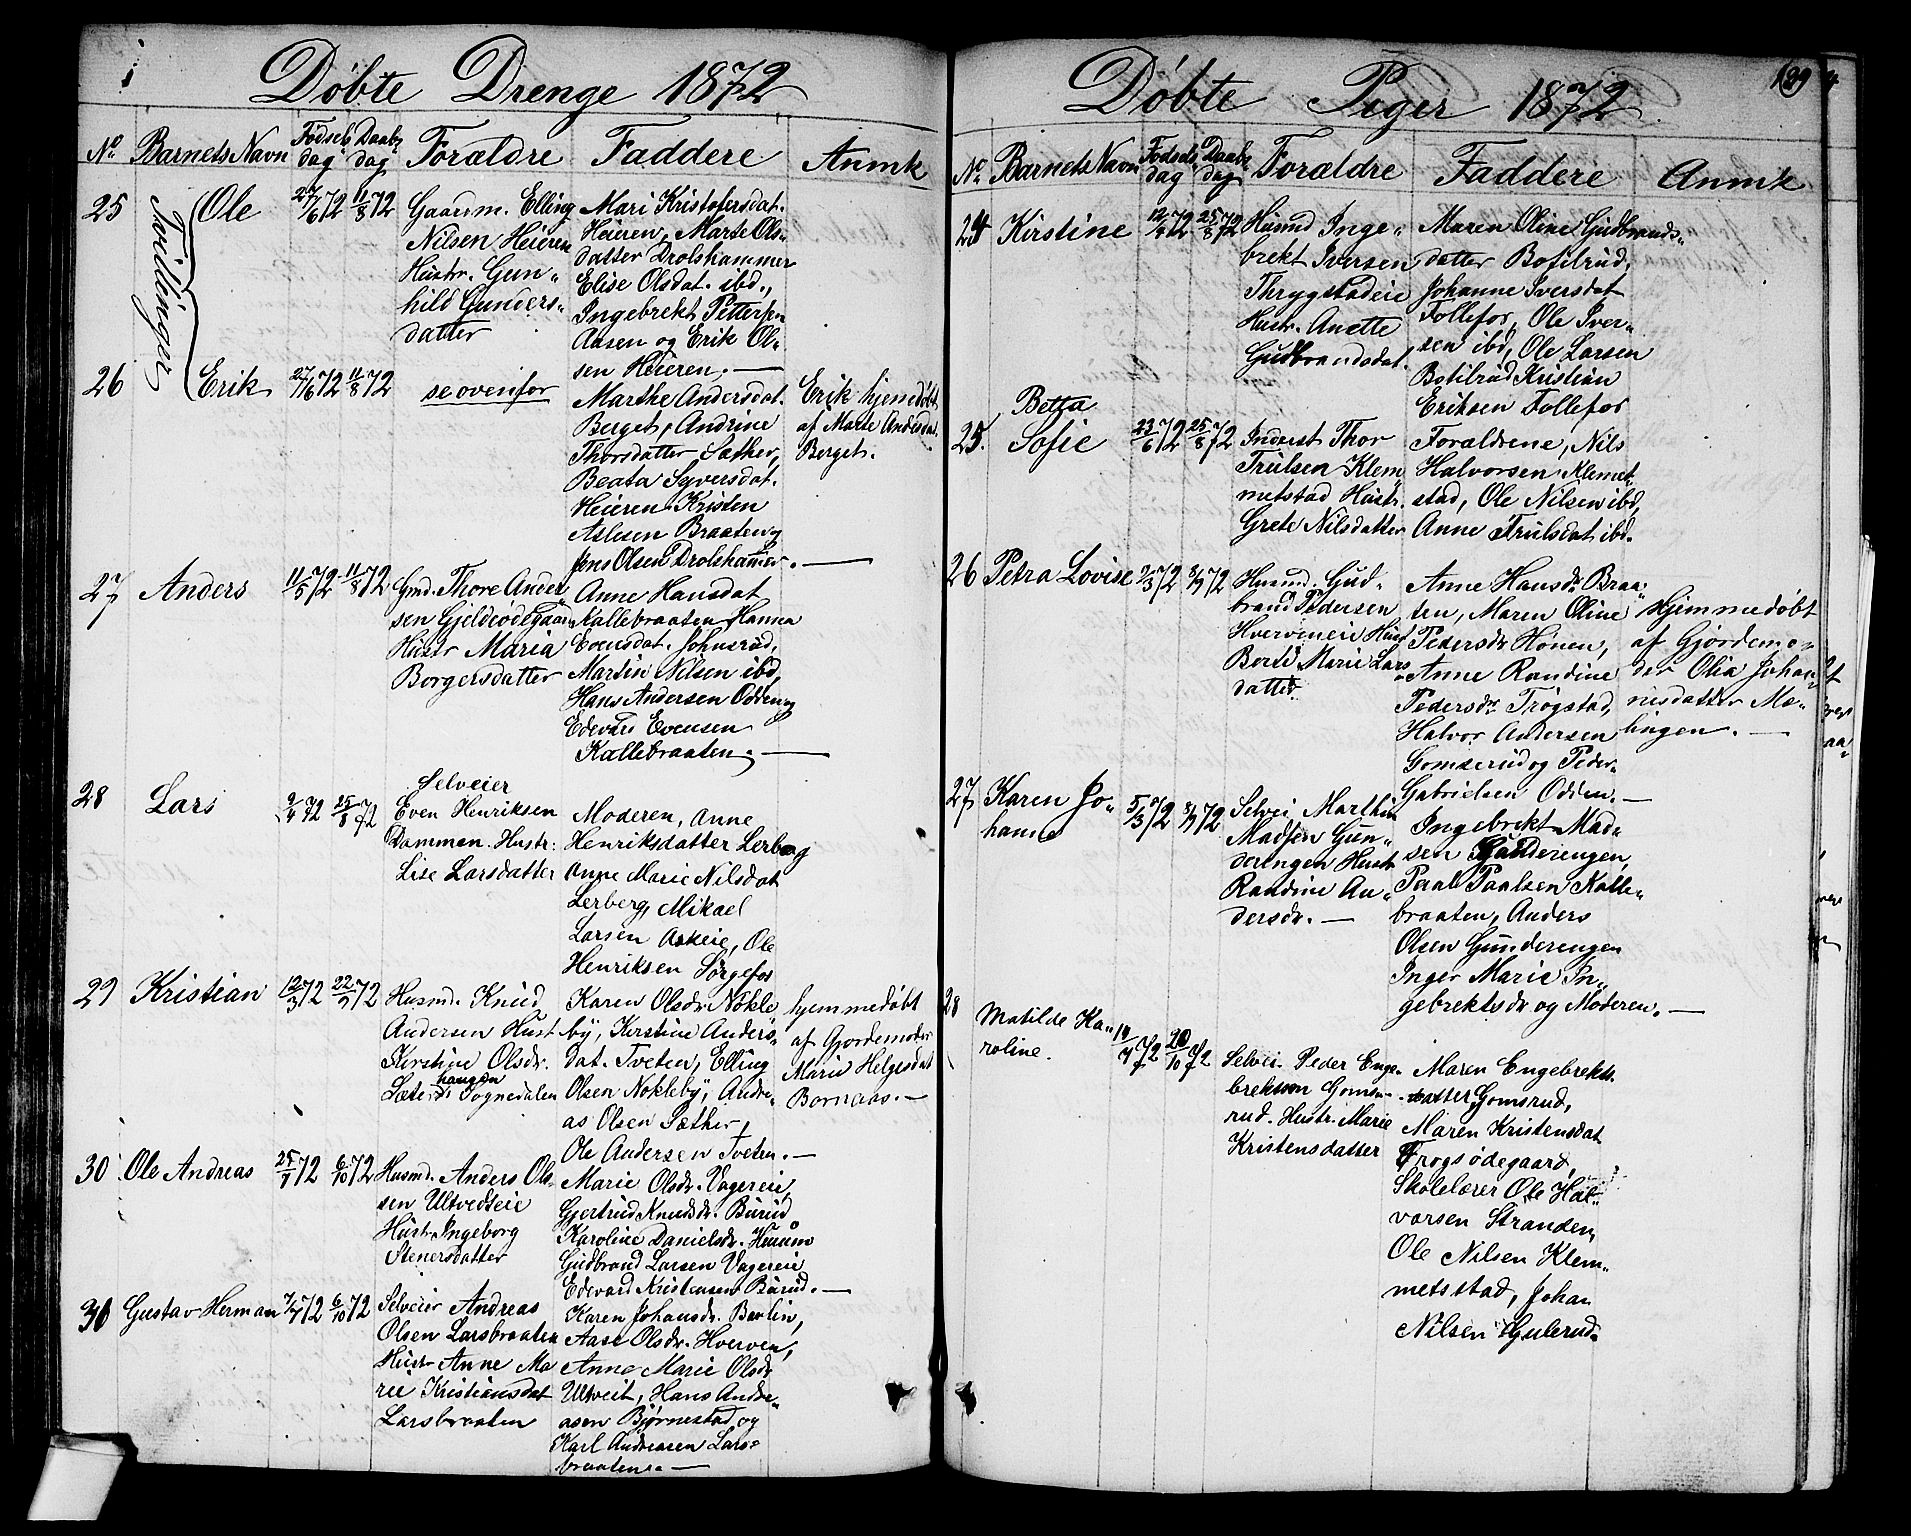 Döbte Drenge 1872
No Barnets Navn Födsels dag Daabs dag Forældre Faddere Anmk
25 Tvillinger Ole 27/6 72 11/8 72
Gaardm. Elling
Nilsen Heieren
Hustr. Gun„
hild Gunders„
datter
Mari Kristofersdat.
Heieren, Marte Ols„
datter Drolshammer
Elise Olsdat. ibd.,
Ingebrekt Pettersen
Aasen og Erik Ol„
sen Heieren. —
26 Erik 27/6 72 11/8 72
se ovenfor
Marthe Andersdat.
Berget, Andrine
Thorsdatter Sæther,
Beata Syversdat.
Heieren Kristen
Aslesen Braaten og
Jens Olsen Drolshammer. —
Erik hjemdöbt
af Marte Andersdat.
Berget.
27 Anders 11/5 72 11/8 72
Gmd. Thore Ander„
sen Gjeldeödegaarn
Hustr Maria
Borgersdatter
Anne Hansdat
Kallebraaten Hanna
Evensdat. Johnsrud,
Martin Nilsen ibd,
Hans Andersen Odden og
Edevard Evensen
Kallebraaten. —
28 Lars 2/4 72 25/8 72
Selveier
Even Henriksen
Dammen. Hustr:
Lise Larsdatter
Moderen, Anne
Henriksdatter Lerberg
Anne Marie Nilsdat
Lerberg, Mikael
Larsen Askeie, Ole
Henriksen Sørgefos
29 Kristian 12/3 72 22/9 72
Husmd. Knud
Andersen Hust
Kirstine Olsdr.
haugen
Sæter Sognedalen
Karen Olsdr Nökle
by, Kirstine Anders„
dat. Tveten, Elling
Olsen Nökleby, Andre„
as Olsen Sæther,
Ole Andersen Tveten. —
hjemmedöbt
af Gjordemoder
Marie Helgesdat
Bornaas. —
30 Ole Andreas 25/7 72 6/10 72
Husmd. Anders Ols„
sen Ultvedteie
Hustr Ingeborg
Stenersdatter
Marie Olsdr. Vagereie,
Gjertrud Knudsdr. Burud
Karoline Danielsdr.
Gudbrand Larsen Vagereie
Edevard Kristensen Burud. —
31 Gustav Herman 7/7 72 6/10 72
Selveier Andreas
Olsen Larsbraaten
Hustr Anne Ma
rie Kristiansdat
Larsbraaten
Karen Johansdr. Berlin,
Aase Olsdr. Hverven,
Anne Marie Olsdr
Ultveit, Hans Andre„
asen Björnestad og
Karl Andreasen Lars„
braaten. —
Döbte Piger 1872
189
No Barnets Navn Födsels dag Daabs dag Forældre Faddere Anmk
24 Kirstine 12/4 72 25/8 72
Husmd Inge„
brekt Iversen
Thrygstadeie
Hustr. Anette
Gudbrandsdat.
Maren Oline Gudbrands„
datter Botilrud,
Johanne Iversdat
Follefos, Ole Iver„
sen ibd, Ole Larsen
Botilrud Kristian
Eriksen Follefos
25. Betta
Sofie 23/6 72 25/8 72
Inderst Thor
Trulsen Klem„
metstad Hustr.
Grete Nilsdatter
Forældrene, Nils
Halvorsen Klemet„
stad, Ole Nilsen ibd,
Anne Trulsdat ibd.
26 Petra Lovise 2/3 72 8/9 72
Husmd. Gud„
brand Pedersen
Hverveneie Hust
Berte Marie Lars
datter
Anne Hansdr Braa„
ten, Maren Oline
Pedersdr Hönen,
Anne Randine
Pedersdr Trögstad,
Halvor Andersen
Gomserud og Peder
Gabrielsen Odden. —
Hjemmedöbt
af Gjordemo„
der Olia Johan„
nesdatter Mæ„
lingen. —
27 Karen Jo„
hanne 5/3 72 8/9 72
Selvei Marthin
Madsen Gun„
derengen Hust
Randine An„
dersdr. —
Ingebrekt Mad„
sen Gunderengen,
Paal Paalsen Kalle„
braaten, Anders
Olsen Gunderengen
Inger Marie In„
gebrektsdr og Moderen. —
28 Matilde Ka„
roline. 10/7 72 20/10 72
Selvei Peder Enge„
brektsen Goms„
rud. Hustr. Marie
Kristensdatter
Maren Engebrekts
datter Gomsrud,
Maren Kristensdat
Frogsødegaard,
Skolelærer Ole Hal„
vorsen Stranden,
Ole Nilsen Klem„
metsstad, Johan
Nilsen Gulerud.